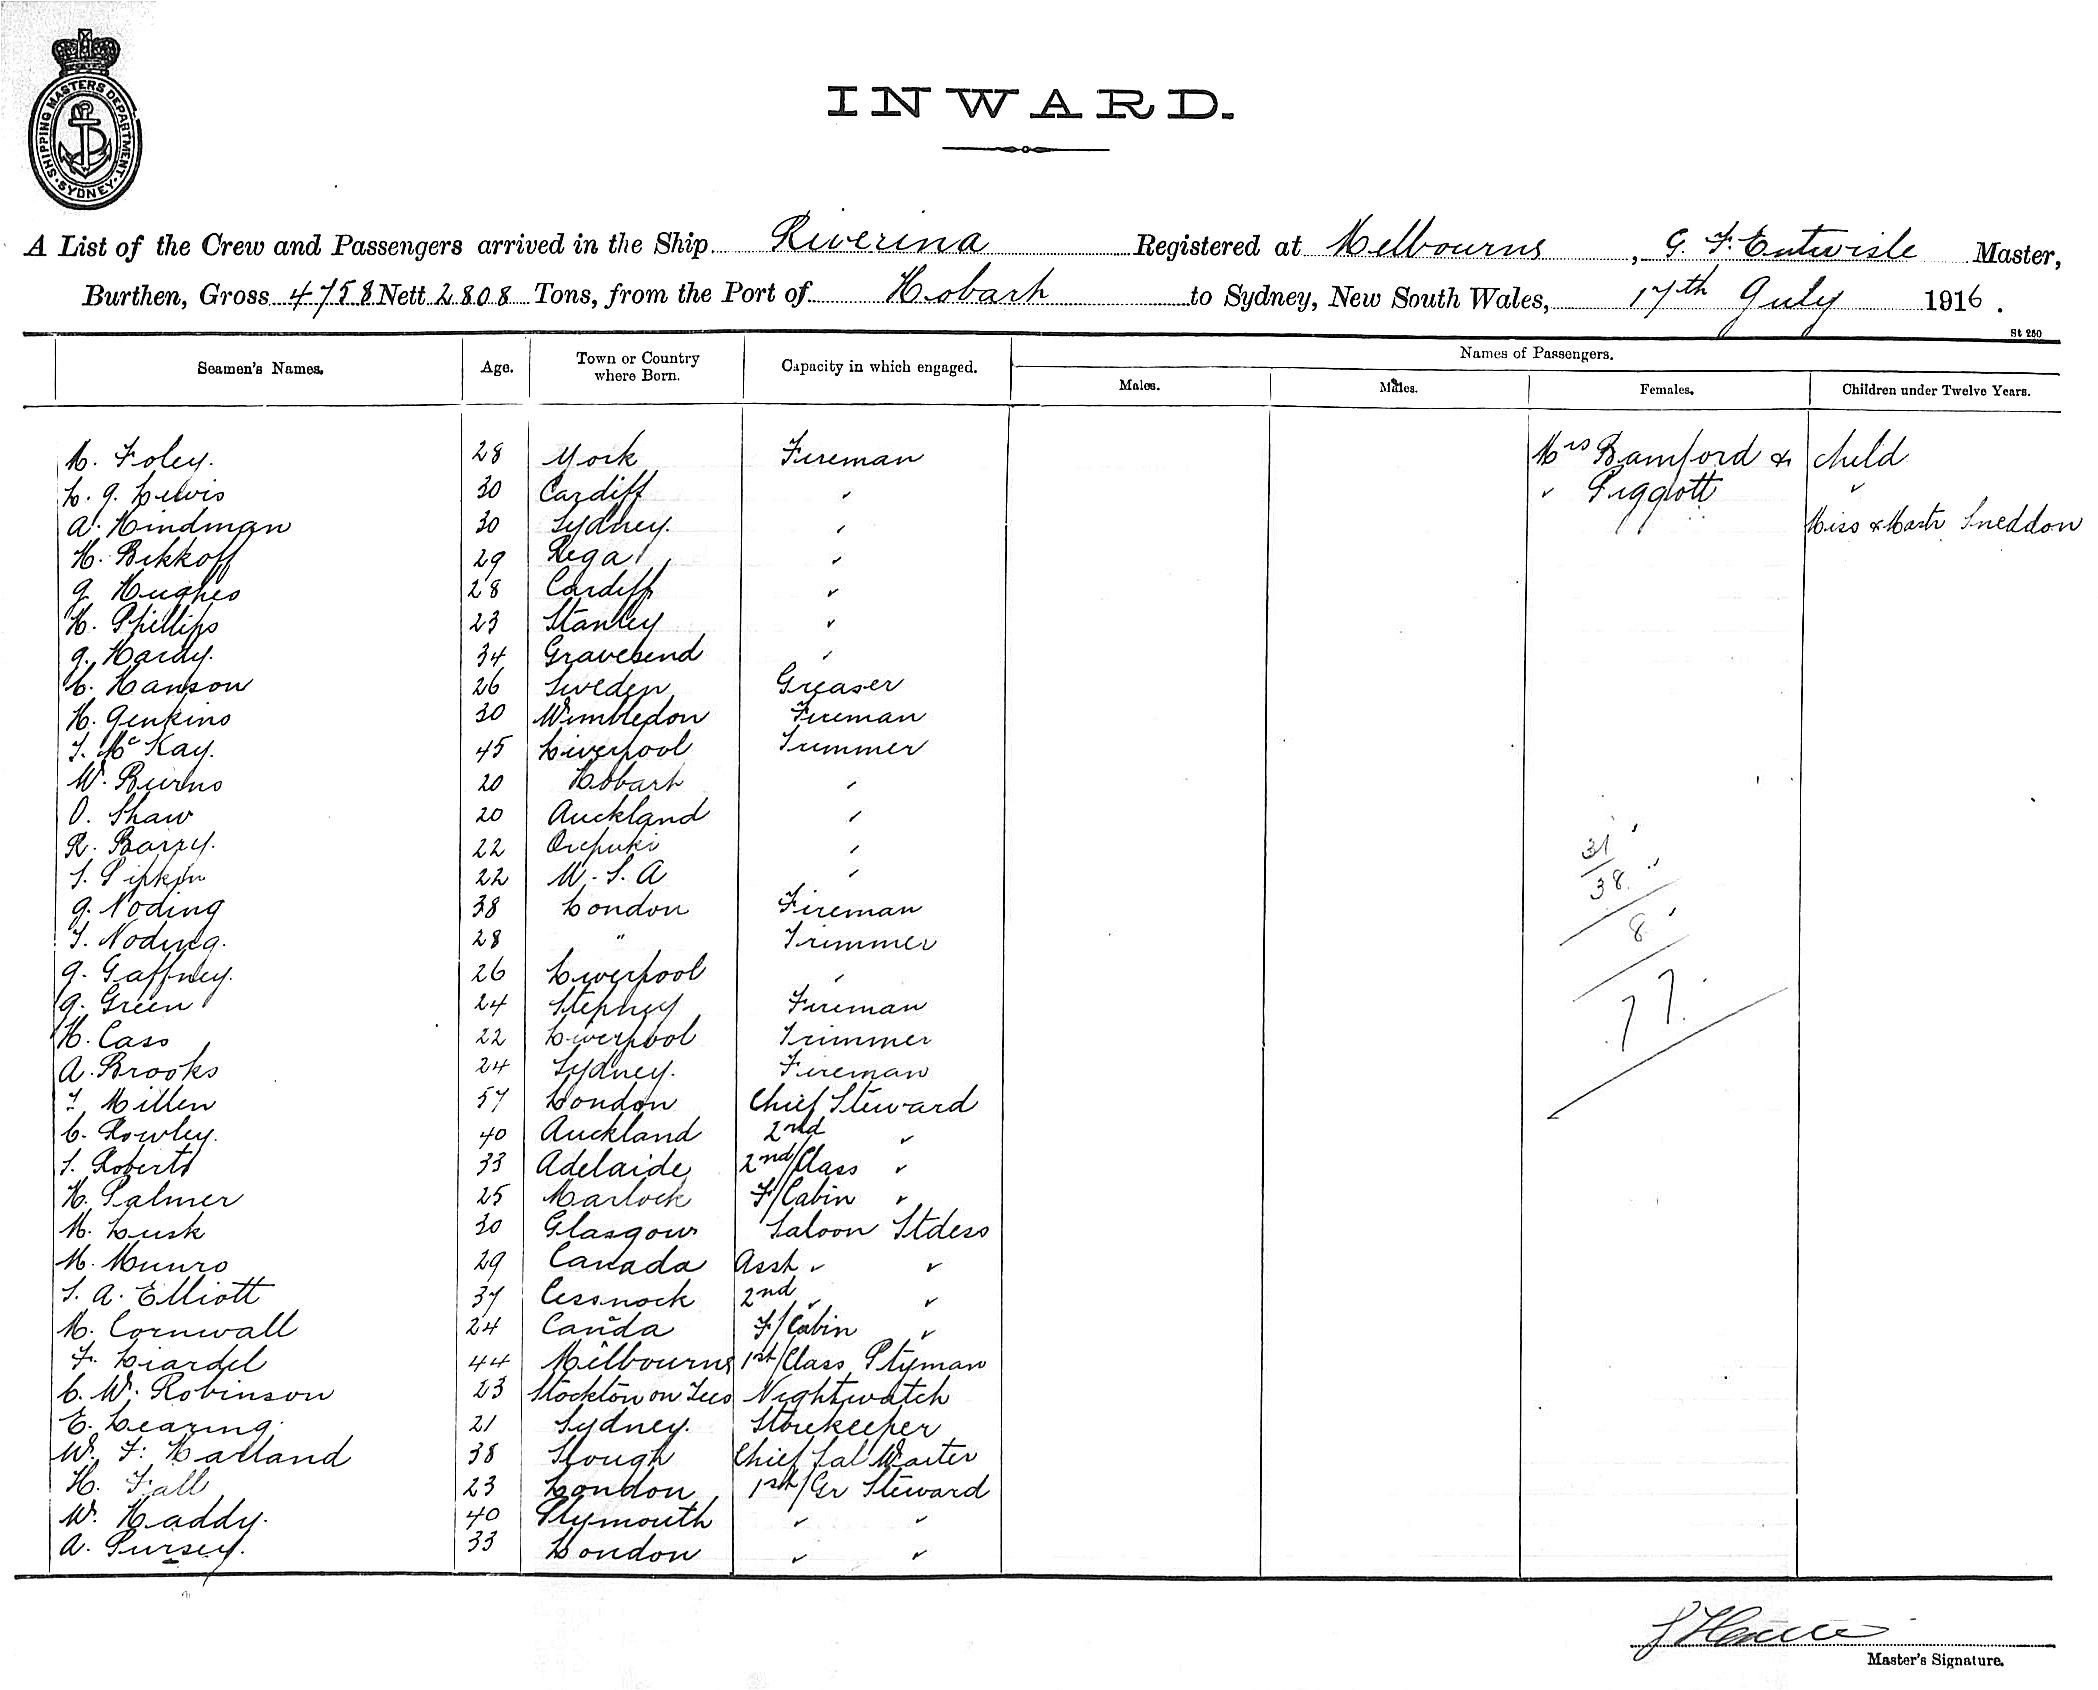 SHIPPING MASTERS DEPARTMENT. SYDNEY.
INWARD.
A List of the Crew and Passengers arrived in the Ship Riverina Registered at Melbourne, G. F. Entwisle Master,
Burthen, Gross 4758 Nett 2808 Tons, from the Port of Hobart to Sydney, New South Wales, 17th July 1916.
St 250
Seamen's Names. Age. Town or Country where Born. Capacity in which engaged. Names of Passengers.
Males. Males. Females. Children under Twelve Years.
M. Foley. 28 York Fireman Mrs Bamford & child
L. J. Lewis 30 Cardiff " " Piggott "
A. Hindman 30 Sydney. " Miss & Mastr Sneddon
H. Bikkoff 29 Rega "
J. Hughes 28 Cardiff "
H. Phillips 23 Stanley "
J. Hardy. 34 Gravesend "
C. Hanson 26 Sweden Greaser
H. Jenkins 30 Wimbledon Fireman
T. McKay. 45 Liverpool Trimmer
W. Burns 20 Hobart "
O. Shaw 20 Auckland "
R. Barry. 22 Orepuki "
S. Pipkin 22 U.S.A "
J. Noding 38 London Fireman
T. Noding. 28 " Trimmer
J. Gaffney. 26 Liverpool "
J. Green 24 Stepney Fireman
H. Cass 22 Liverpool Trimmer
A. Brooks 24 Sydney. Fireman
T. Millen 57 London Chief Steward
C. Rowley. 40 Auckland 2nd "
S. Roberts 33 Adelaide 2nd/Class "
H. Palmer 25 F/Cabin "
M. Lusk 30 Glasgow Saloon Stdess
M. Munro 29 Canada Asst " "
S. A. Elliott 37 Cessnock 2nd " "
M. Cornwall 24 Canada F/Cabin "
F. Liardel 44 Melbourne 1st/Class Ptyman
C. W. Robinson 23 Stockton on Tees Nightwatch
E. Learing. 21 Sydney. Storekeeper
W. F. Harland 38 Slough Chief Sal Waiter
H. Fall 23 London 1st/Gr Steward
W. Haddy. 40 Plymouth " "
A. Pursey. 33 London " "
31
38
8
77.
Master's Signature.